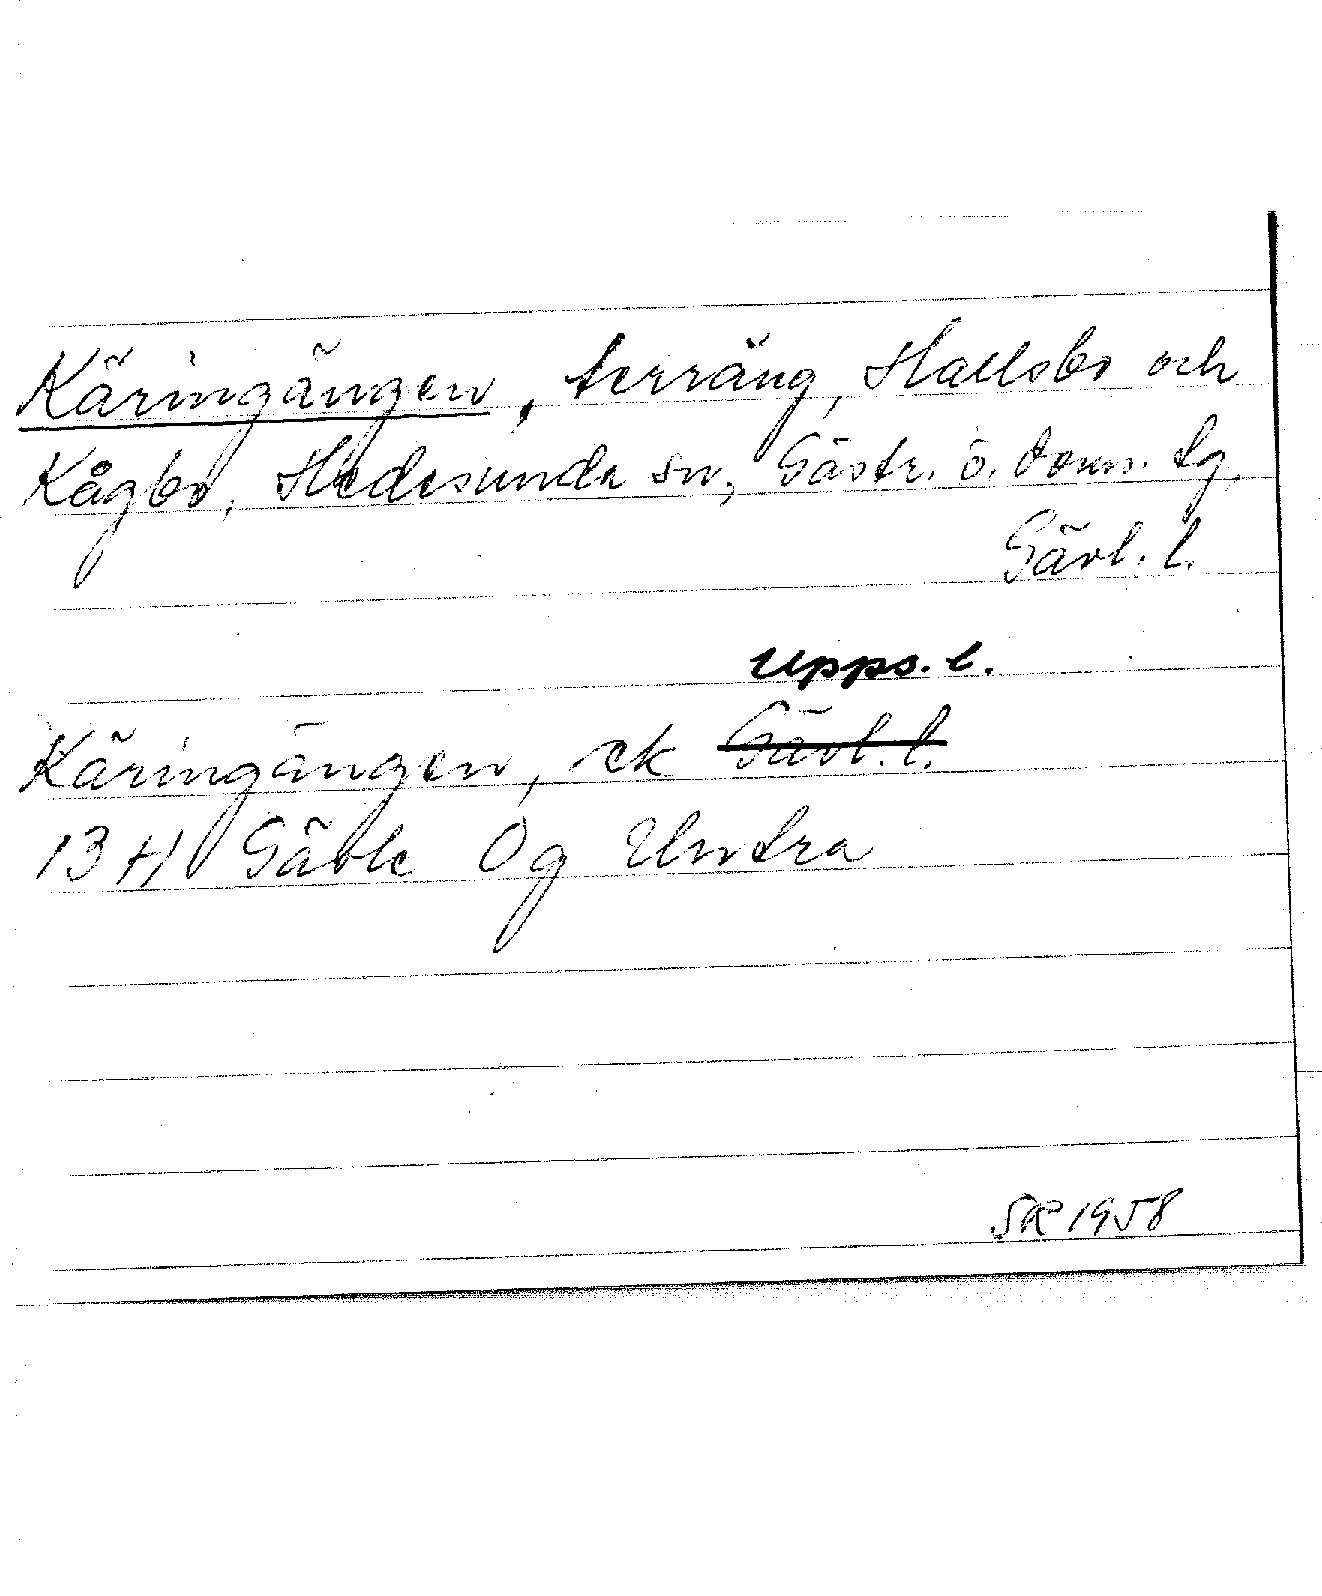 Käringängen, terräng, Hallsbo och
Kågbo, Hedesunda sn, Gästr. ö. doms. tg,
Gävl. l.
Upps. l.
Käringängen, ek Gävl. l.
13 H Gävle Og Untra
SR 1958